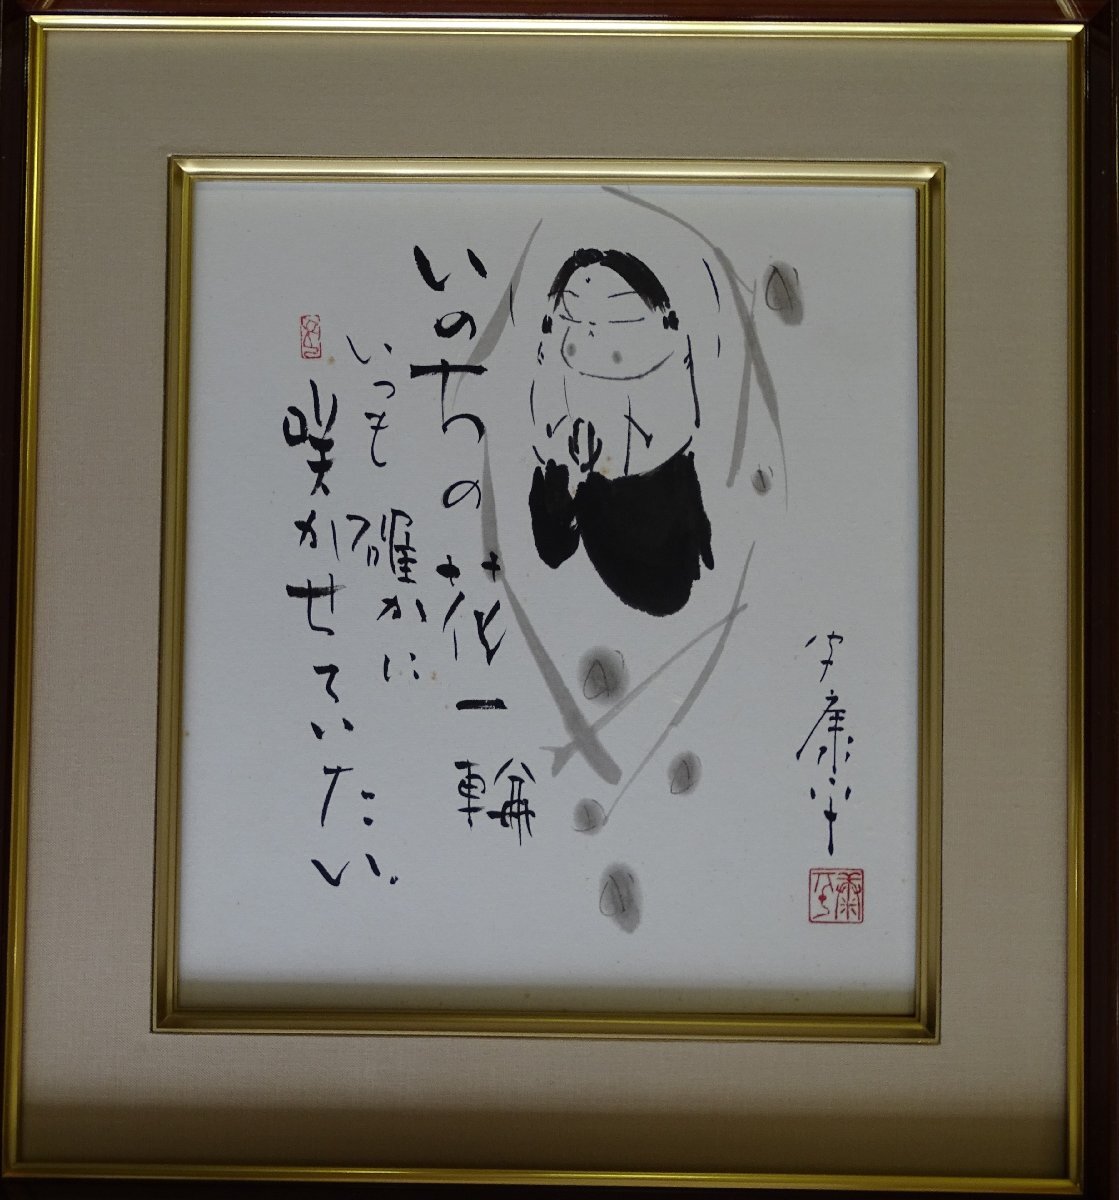 いのちの花一輪
いつも確かに
咲かせていたい。
安康平